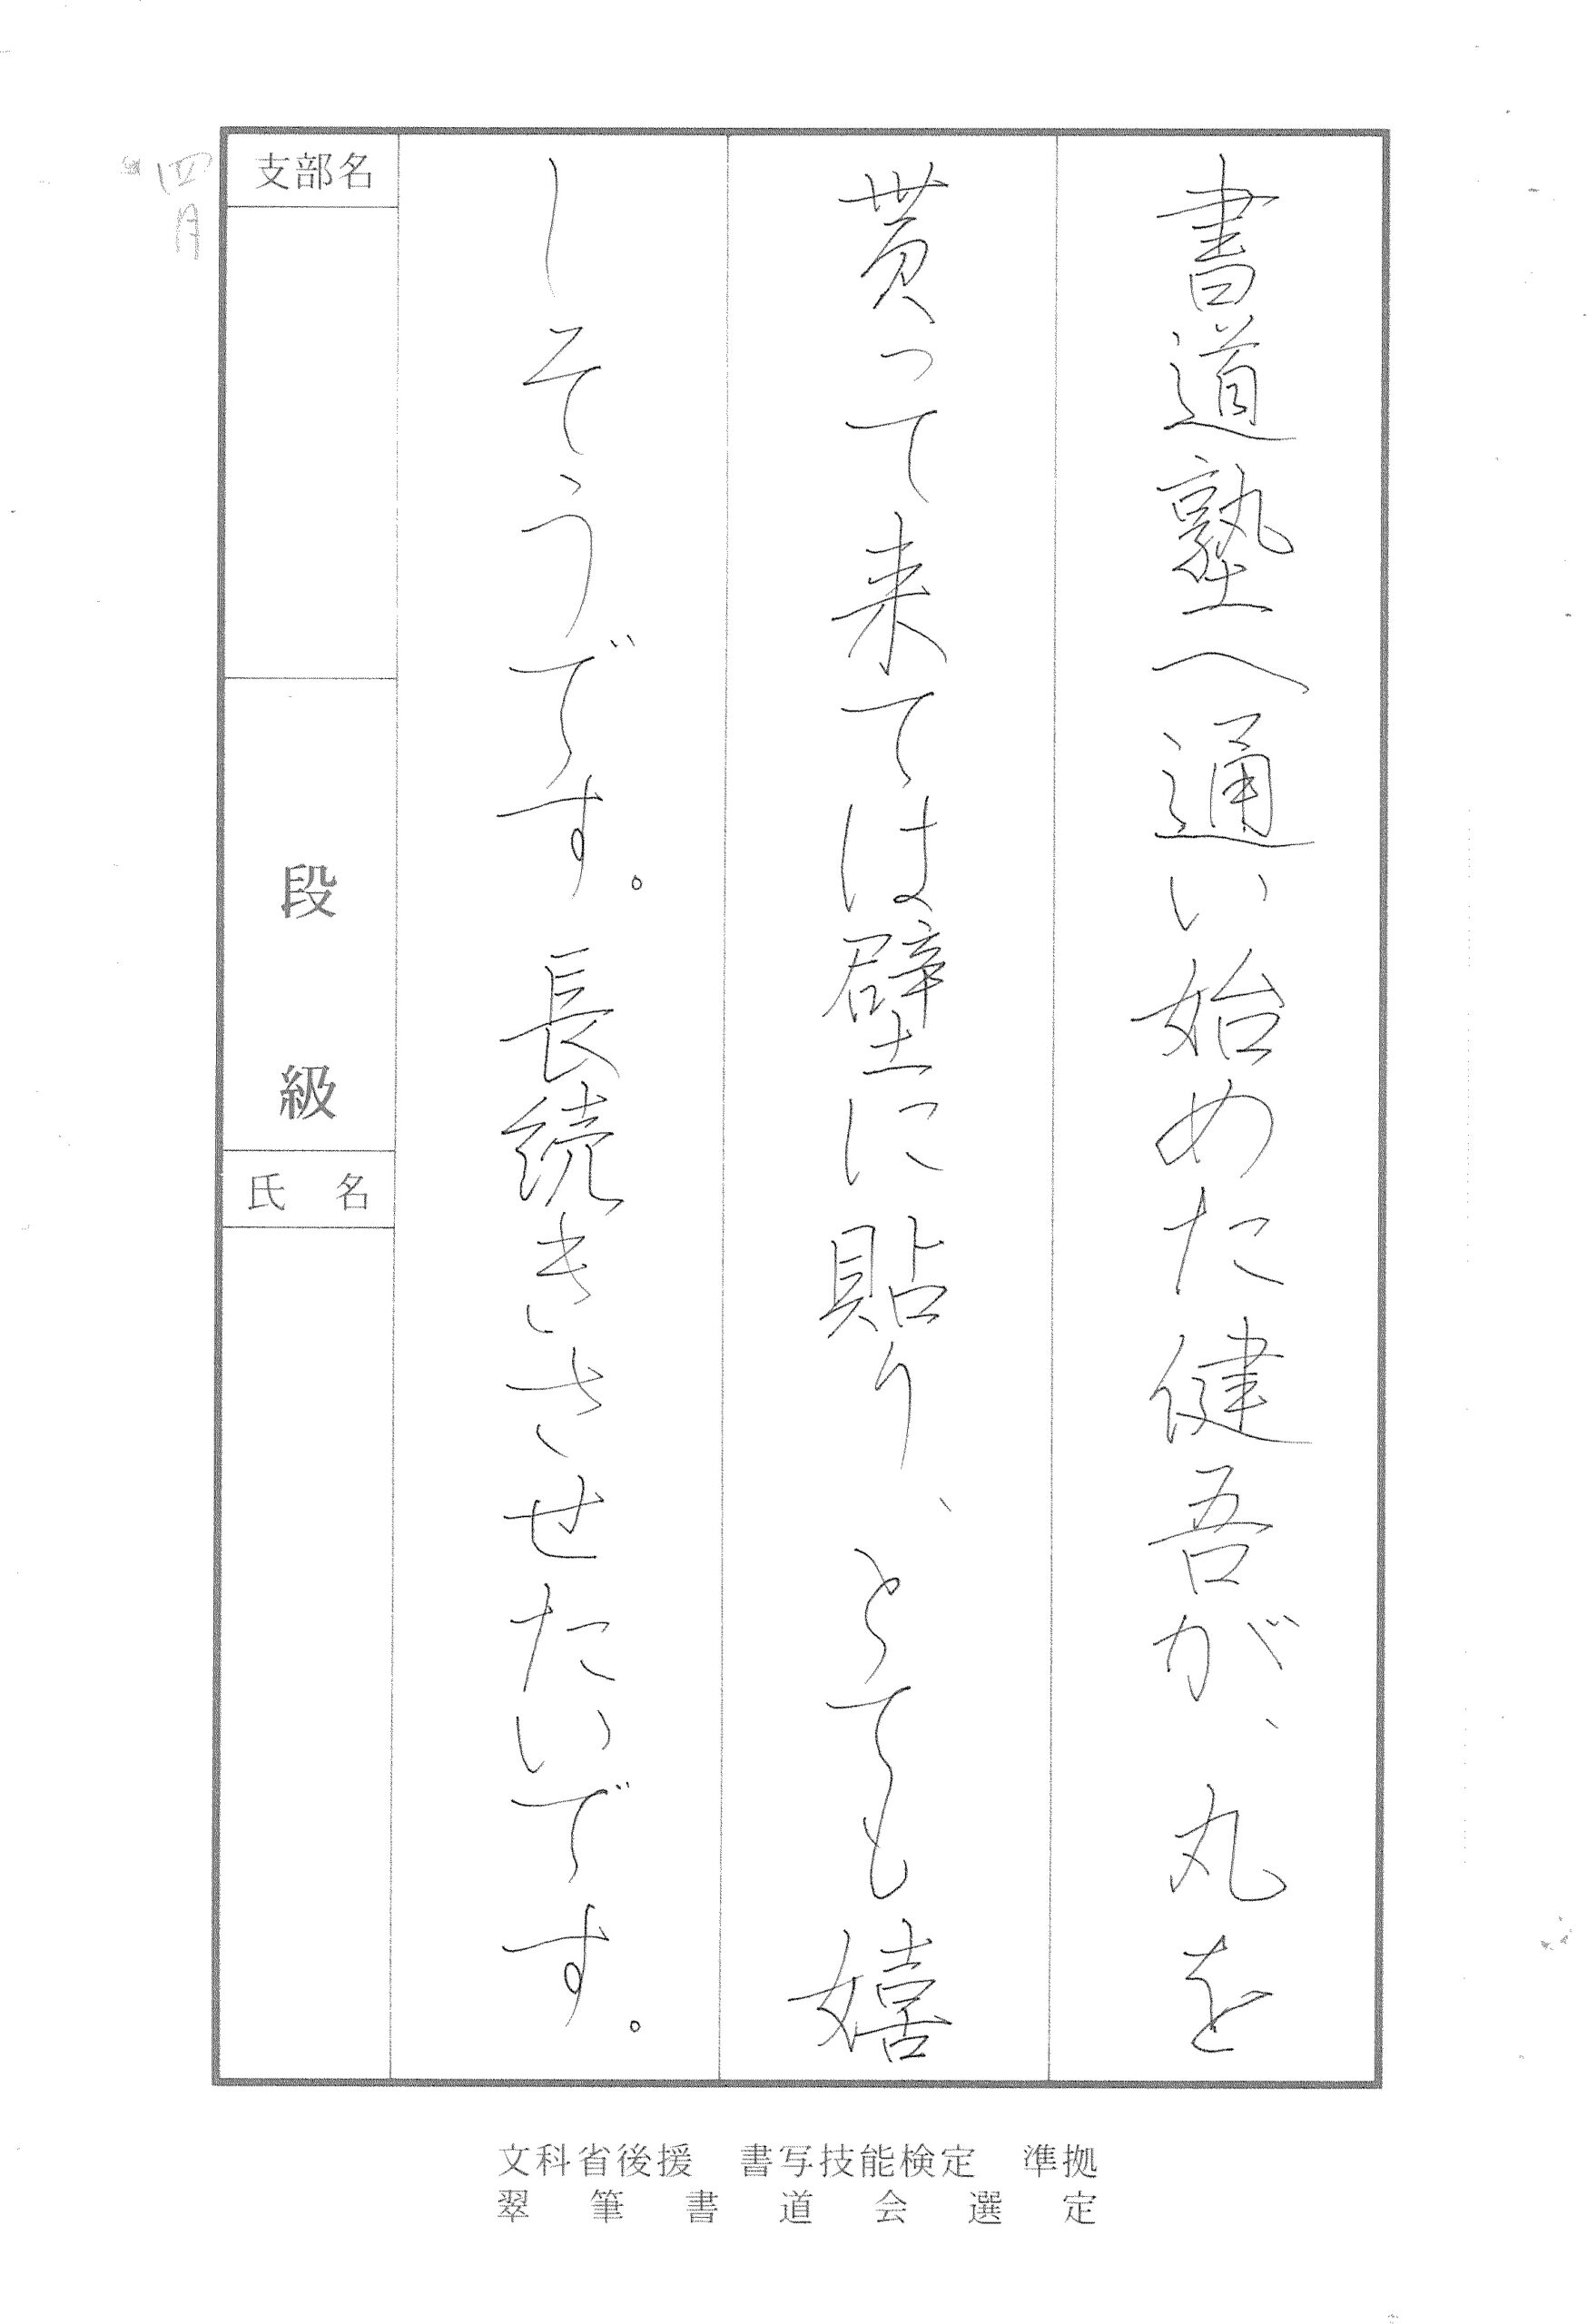 書道塾へ通い始めた健吾が、丸を
貰って来ては壁に貼り、とても嬉
しそうです。長続きさせたいです。
支部名
段級
氏名
四月
文科省後援 書写技能検定 準拠
翠筆書道会選定